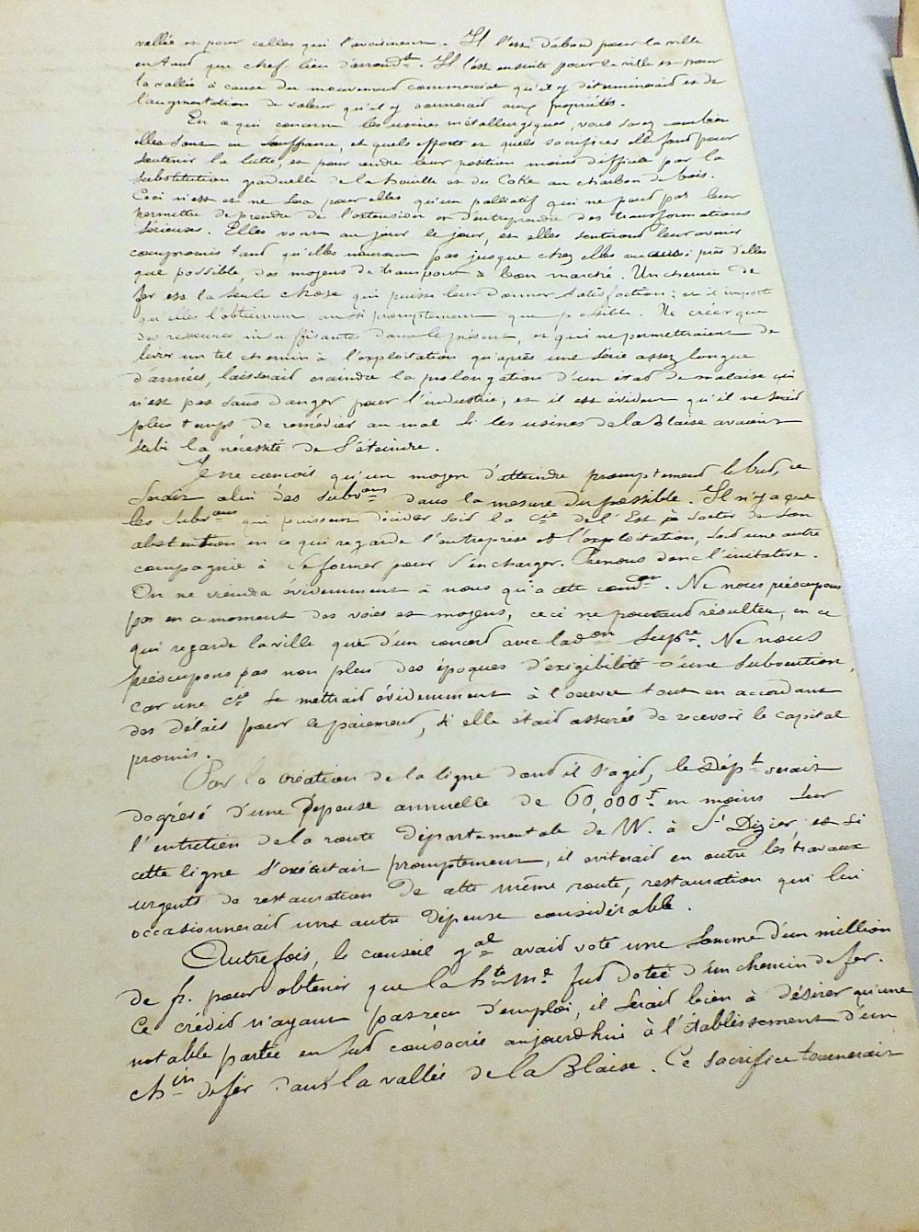 vallée et pour celles qui l'avoisinent. Il l'est d'abord pour la ville
en tant que chef lieu d'arrondt. Il l'est ensuite pour la ville et pour
la vallée à cause du mouvement commercial qu'il y déterminerait et de
l'augmentation de valeur qu'il y donnerait aux propriétés.
En ce qui concerne les usines métallurgiques, vous savez combien
elles sont en souffrance, et quels efforts et quels sacrifices elles font pour
soutenir la lutte, et pour rendre leur position moins difficile par la
substitution graduelle de la houille et du Coke au charbon de bois.
Ceci n'est et ne sera pour elles qu'un palliatif qui ne peut pas leur
permettre de prendre de l'extension et d'entreprendre des transformations
sérieuses. Elles vont au jour le jour, et elles sentiront leur avenir
compromis tant qu'elles n'auront pas jusque chez elles ou aussi près d'elles
que possible, des moyens de transport à bon marché. Un chemin de
fer est la seule chose qui puisse leur donner satisfaction ; et il importe
qu'elles l'obtiennent aussi promptement que possible. Ne créer que
des ressources insuffisantes dans le présent, et qui ne permettraient de
livrer un tel chemin à l'exploitation qu'après une série assez longue
d'années, laisserait craindre la prolongation d'un état de malaise qui
n'est pas sans danger pour l'industrie, et il est évident qu'il ne serait
plus temps de remédier au mal si les usines de la Blaise avaient
subi la nécessité de s'éteindre.
Je ne conçois qu'un moyen d'atteindre promptement le but, ce
serait celui des subvons dans la mesure du possible. Il n'y a que
les subvons qui puissent décider soit la Cie de l'Est à sortir de son
abstention en ce qui regarde l'entreprise et l'exploitation, soit une autre
compagnie à se former pour s'en charger. Prenons donc l'initiative.
On ne viendra évidemment à nous qu'à cette condon. Ne nous préoccupons
pas en ce moment des voies et moyens, ceci ne pouvant résulter, en ce
qui regarde la ville que d'un concert avec l'adon supre. Ne nous
préoccupons pas non plus des époques d'exigibilité d'une subvention,
car une Cie se mettrait évidemment à l'oeuvre tout en accordant
des délais pour le paiement, si elle était assurée de recevoir le capital
promis.
Par la création de la ligne dont il s'agit, le Dépt serait
dégrévé d'une dépense annuelle de 60,000f en moins sur
l'entretien de la route départementale de W. à St Dizier et si
cette ligne s'exécutait promptement, il éviterait en outre les travaux
urgents de restauration de cette même route, restauration qui lui
occasionnerait une autre dépense considérable.
Autrefois, le conseil gal avait voté une somme d'un million
de fr. pour obtenir que la hte me fut dotée d'un chemin de fer.
Ce crédit n'ayant pas reçu d'emploi, il serait bien à désirer qu'une
notable partie en fut consacrée aujourdhui à l'établissement d'un
chin de fer dans la vallée de la Blaise. Ce sacrifice tournerait